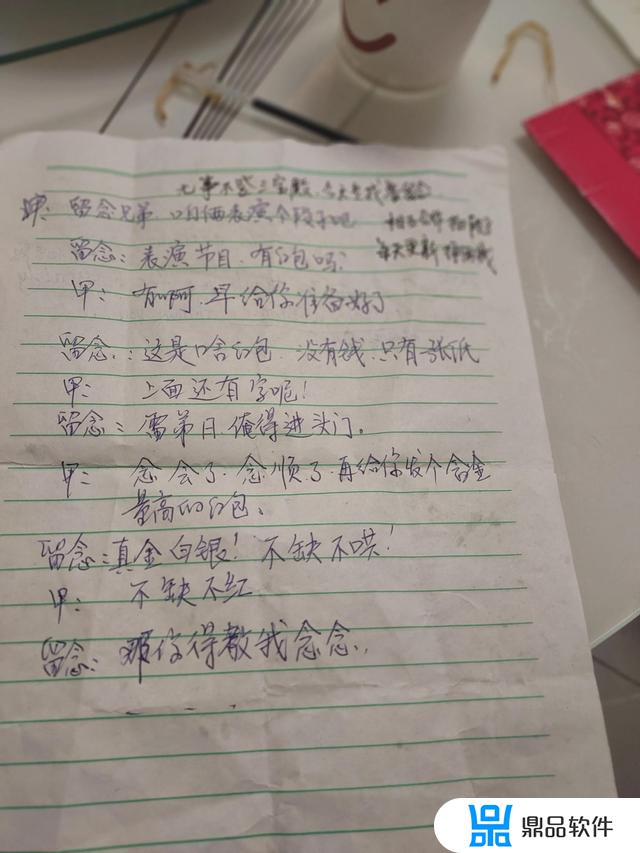 无事不登三宝殿
甲: 留念兄弟. 咱俩表演个段子吧
每天更新
留念: 表演节目. 有红包吗?
甲: 有啊. 早给你准备好了
留念: 这是啥红包 没有钱.只有张纸
甲: 上面还有字呢!
留念: 俺得进头门。
甲: 念会了.念顺了.再给你发个含金
量高的红包。
留念: 真金白银! 不缺不哄!
甲: 不缺不红
留念: 那你得教我念念.
鼎品软件